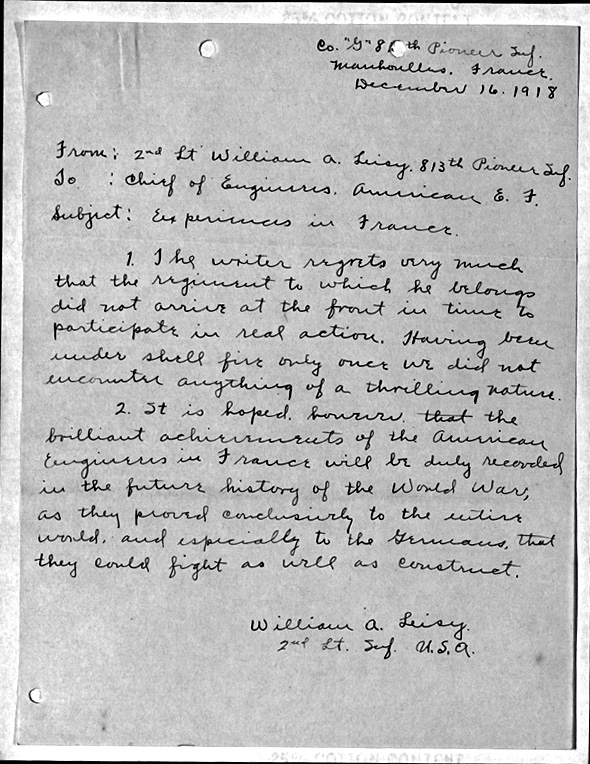 Co. "G" 8 th Pioneer Inf.
Manheulles, France.
December 16, 1918
From: 2nd Lt William A. Leisy, 813th Pioneer Inf.
To : Chief of Engineers, American E. F.
Subject: Experiences in France.
1. The writer regrets very much
that the regiment to which he belongs
did not arrive at the front in time to
participate in real action. Having been
under shell fire only once we did not
encounter anything of a thrilling nature.
2. It is hoped, however, that the
brilliant achievements of the American
Engineers in France will be duly recorded
in the future history of the World War,
as they proved conclusively to the entire
world, and especially to the Germans, that
they could fight as well as construct.
William A. Leisy.
2nd Lt. Inf. U.S.A.